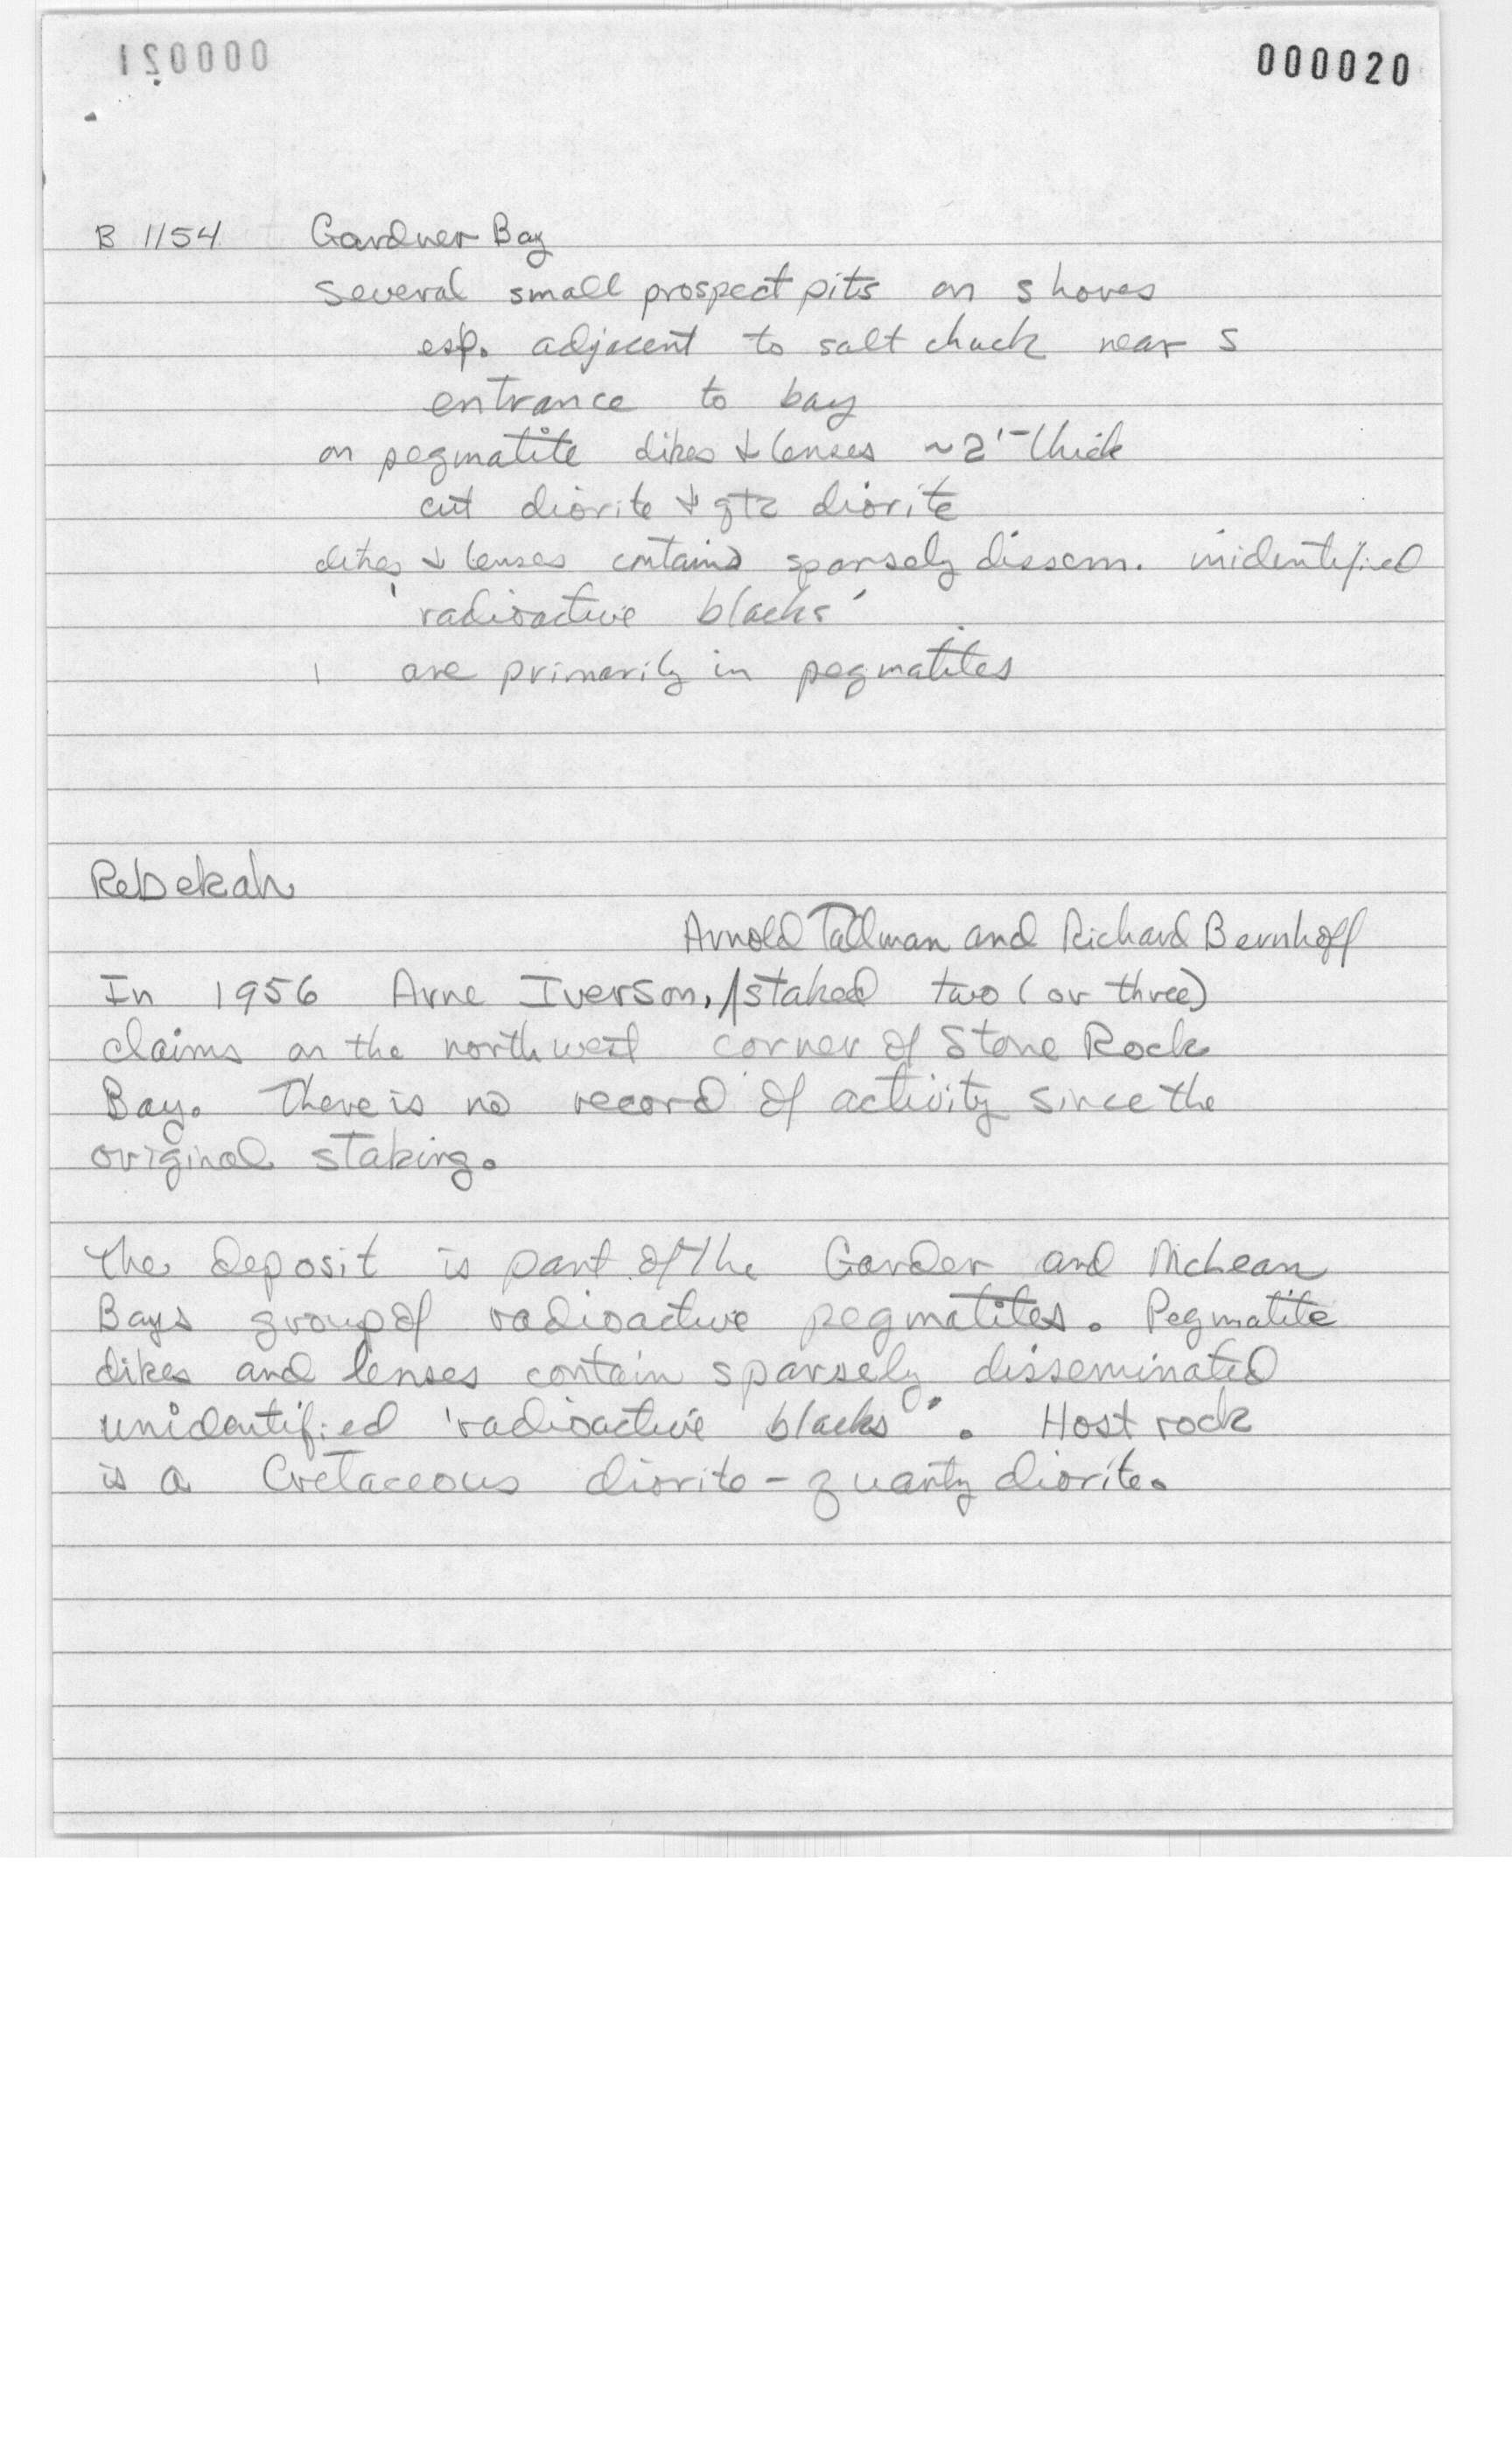 000020
B 1154 Gardner Bay
several small prospect pits on shores
esp. adjacent to salt chuck near S
entrance to bay
on pegmatite dikes & lenses ~2'-thick
cut diorite & qtz diorite
dikes & lenses contains sparsely dissem. unidentified
'radioactive blacks'
are primarily in pegmatites
Rebekah
Arnold Tallman and Richard Bernhoff
In 1956 Arne Iverson, staked two (or three)
claims on the northwest corner of Stone Rock
Bay. There is no record of activity since the
original staking.
The deposit is part of the Garder and McLean
Bays group of radioactive pegmatites. Pegmatite
dikes and lenses contain sparsely disseminated
unidentified 'radioactive blacks'. Host rock
is a Cretaceous diorite-quartz diorite.